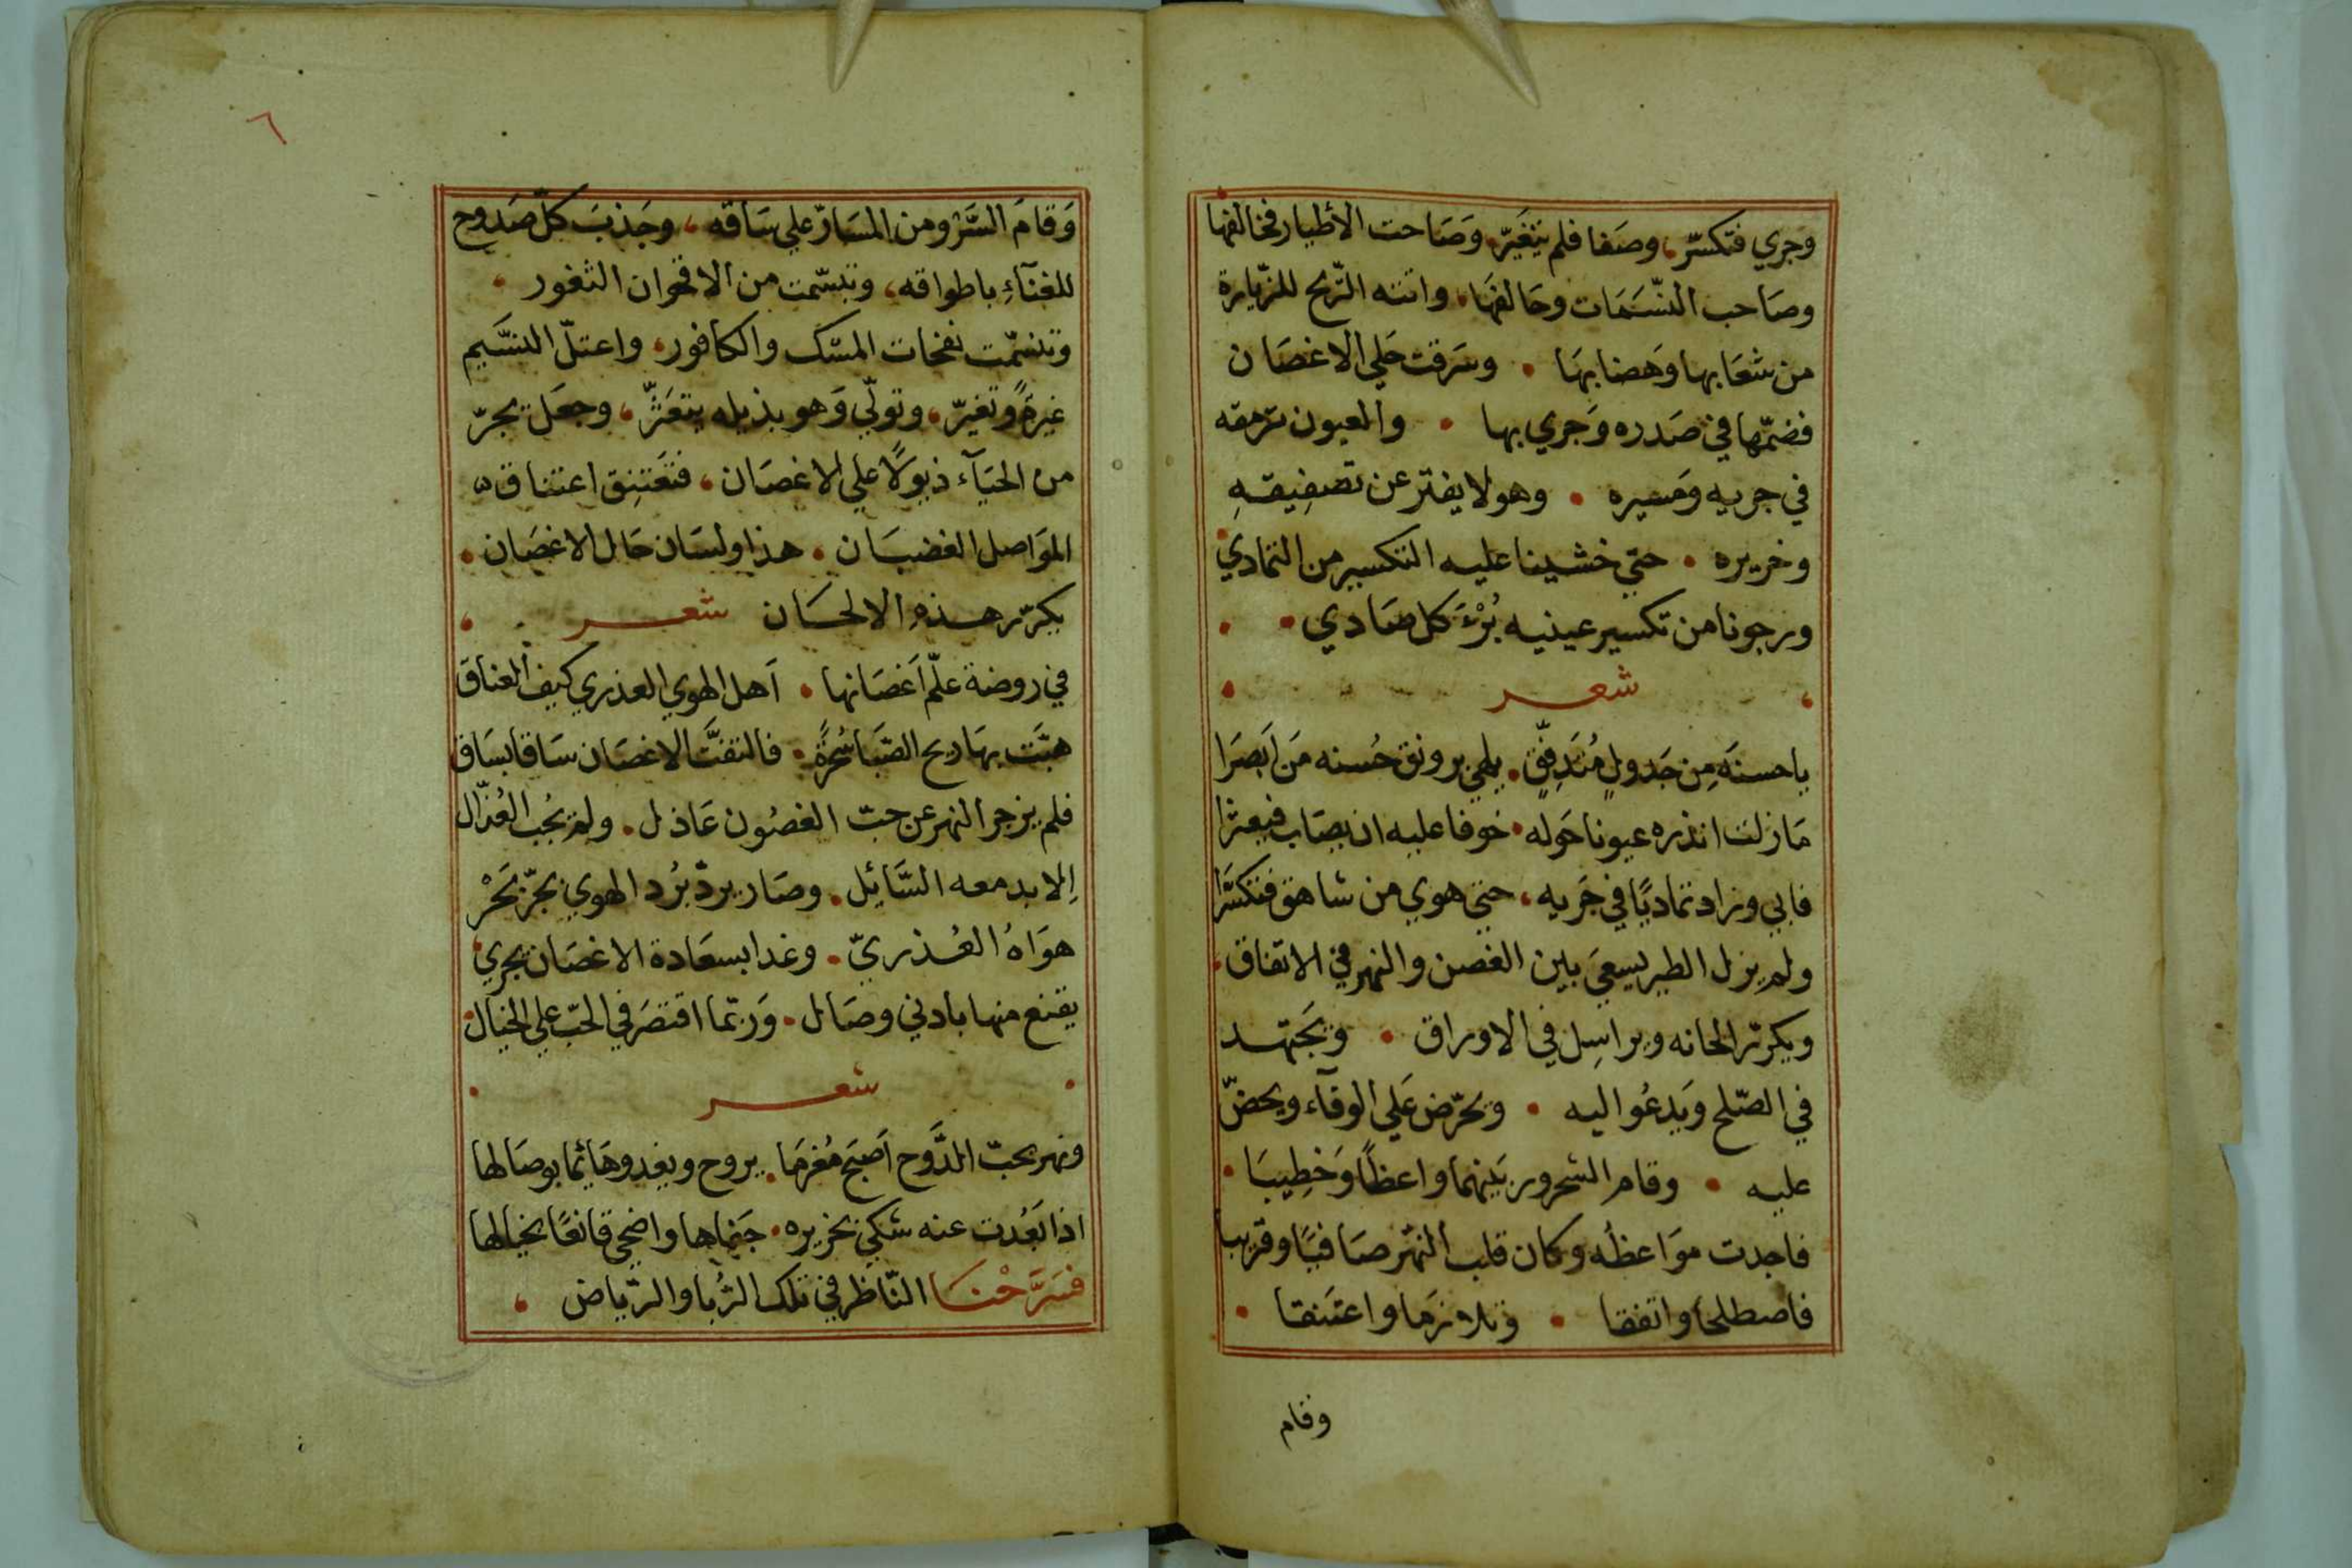 وجري فتكسّر، وصَفا فلم يتغَيّر، وَصَاحت الأطيار فخالفها
وصَاحب النّسَمَات وحَالفهَا، واتته الرّيح للزّيارة
من شعَابها وَهضابهَا • وسَرقت حَلي الاغصَان
فضمّها في صَدره وَجري بها • والعيون ترمقه
في جريه وَمَسيره • وهو لا يفتر عن تصَفِيقهِ
وخريره • حتي خشينا عليه التكسير من التمادي
ورجونا من تكسير عينيه بُرْءَ كل صَادي •
شعر
ياحسنَه مِن جَدولٍ مُتَدفِّقٍ • يلهي برونق حُسنه مَن اَبصَرَا
مَا زلت انذره عيونا حَوله • خوفا عليه ان يصَاب فيعثرا
فابي وزاد تماديًا في جَريه، حتي هوي من شاهق فتكسَّرا
ولم يزل الطير يسعيَ بين الغصن والنهر في الاتفاق
ويكرّر الحانه ويراسِل في الاوراق • ويَجتهد
في الصّلح وَيدعُوا اليه • ويحرّض عَلي الوفآء ويحضّ
عليه • وقام الشحرور بَينهما واعظًا وَخطِيبَا •
فاجدت موَاعظه وكان قلب النهْر صَافيًا وقريبا
فاصطلحا واتفقا • وتلازمَا واعتَنقا •
وقام
٦
وَقامَ السَّرْو من المسَارّ علي سَاقه، وجَذبَ كلّ صَدوح
للغنآءِ باطواقه، وتبسّمت من الاقحوان الثغور •
وتنسّمت نفحات المسْك والكافور • واعتلّ النسَّيم
غيرةً وتغيّر • وتولّي وَهو بذيله يتعَثرّ، وجعَل يجرّ
من الحيَآء ذيولًا علي الاغصَان، فتَعَتنِق اعتناق
الموَاصل الغضبَان • هذا ولسَان حَال الاغصَان •
يكرّر هذهِ الالحَان شعر
في روضة علّم اَغصَانها • اَهل الهوي العذري كيف العناق
هبَّت بهَا ريح الصّبَا سُحرَةً • فالتفتَّ الاغصَان سَاقا بسَاق
فلم يزجر النهر عن حبّ الغصُون عَاذل • ولم يجُب العُذّال
إلا بدمعه السَّائِل • وصَار يردّ بَرْد الهوي بحَرّ بحَرْ
هوَاهُ العُذريّ • وغدا بسعَادة الاغصَان يجري
يقنع منها بادني وصَال • وَربّما اقتصَر في الحبّ علي الخيَال
شعر
ونهر بحبّ الدَّوح اَصبَح مُغرمَا • يروح ويغدو هَائما بوصَالها
اذا بَعُدت عنه شكي بخريره • جَفاها واضحي قانعًا بخيالها
فسَرَّحْنَا النّاظر في تلك الرُّبا والرّياض